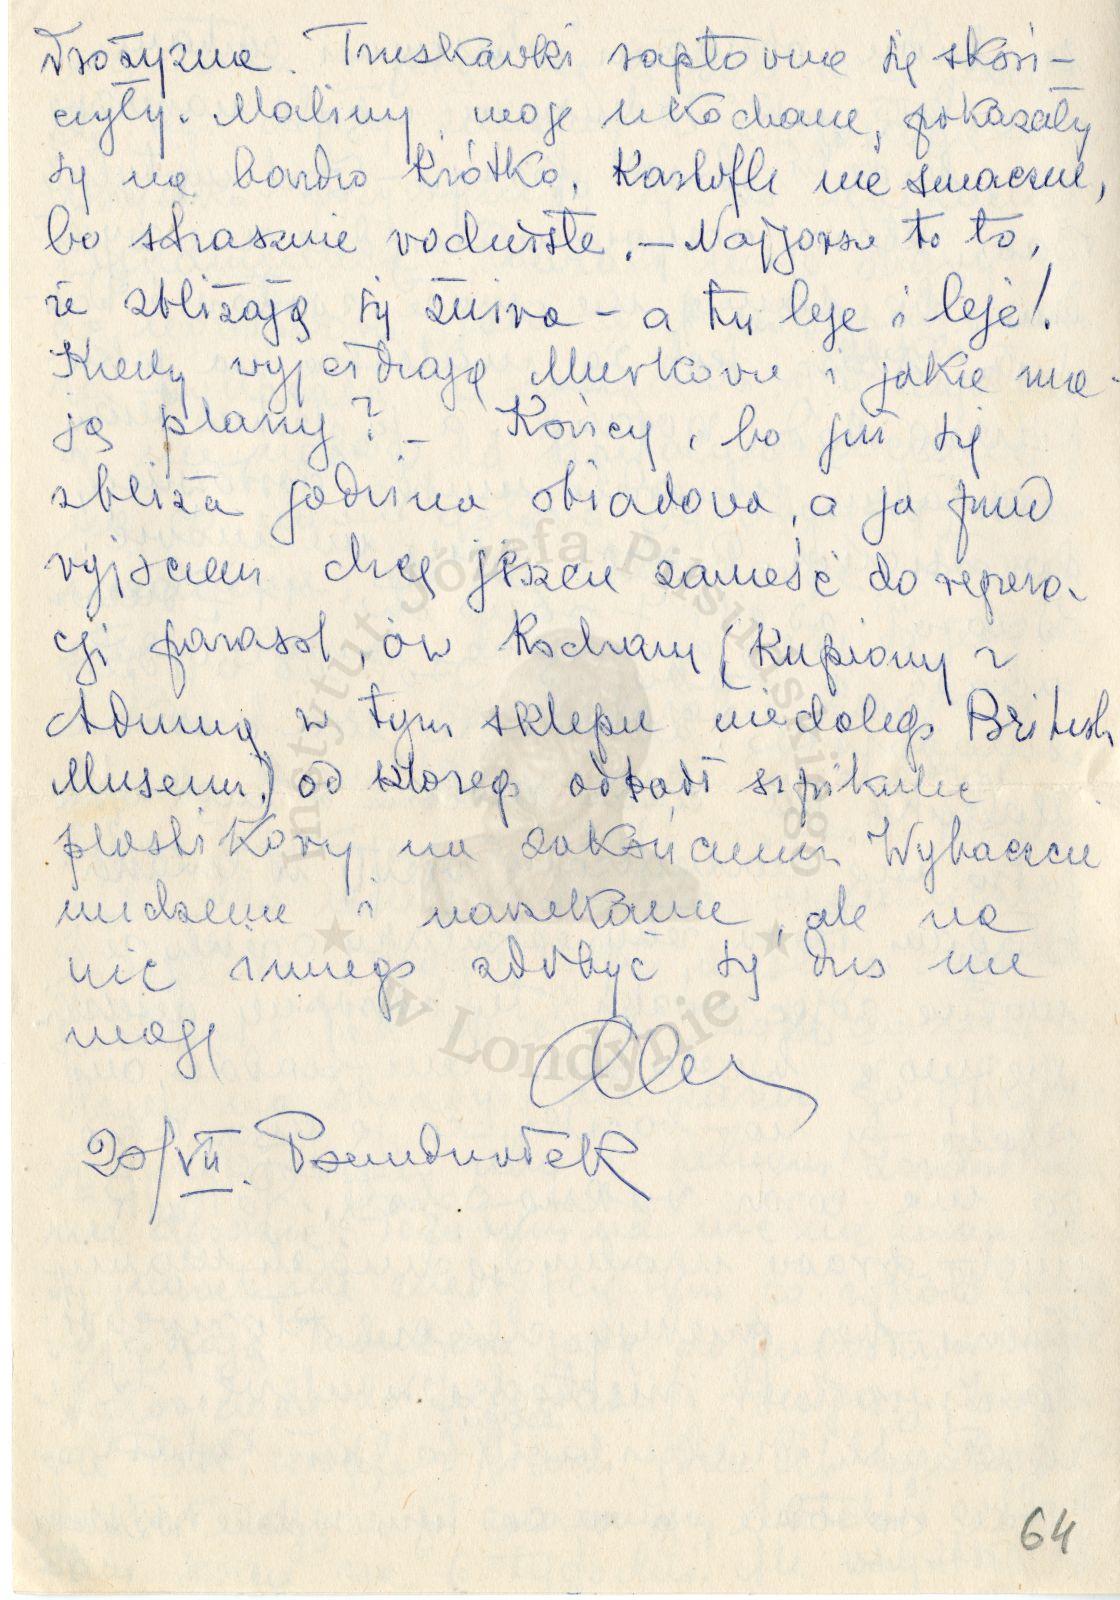 Drożyzna. Truskawki raptowne się skoń-
czyły. Maliny, moje ukochane, pokazały
się na bardzo krótko. Kartofle nie smaczne,
bo strasznie wodniste. – Najgorsze to to,
że zbliżają się żniwa – a tu leje i leje!
Kiedy wyjeżdżają Murkowie i jakie ma-
ją plany? – Kończę, bo już się
zbliża godzina obiadowa, a ja przed
wyjściem chcę jeszcze zanieść do repera-
cji parasol, ów kochany (kupiony z
Adunią w tym sklepie niedaleko British
Museum) od którego odpadł szpikulec
plastikowy na zakończeniu. Wybaczcie
nudzenie i narzekanie, ale na
nic innego zdobyć się dziś nie
mogę
20/VII.
64
Instytut Józefa Piłsudskiego
w Londynie